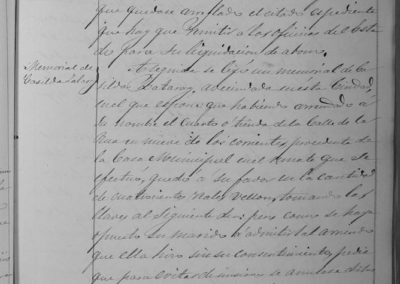 que quedan arreglados el citado espediente
que hay que remitir a las oficinas del Esta-
do para su liquidacion de abono.
Memorial de
Casilda
Enseguida se leyó un memorial de Ca-
silda avecindada en esta Ciudad,
en el que espone que habiendo arrendado a
su nombre el cuarto o tienda de la Calle de la
Rua en nueve de los corrientes, procedente de
la Casa Municipal en el remate que se
efectuó, quedó a su favor en la cantidad
de cuatrocientos reales vellon, tomando las
llaves al siguiente dia; pero como se haya
opuesto su marido a admitir tal arriendo
que ella hizo sin su consentimiento, pedia
que para evitar disensiones se anulara dicho